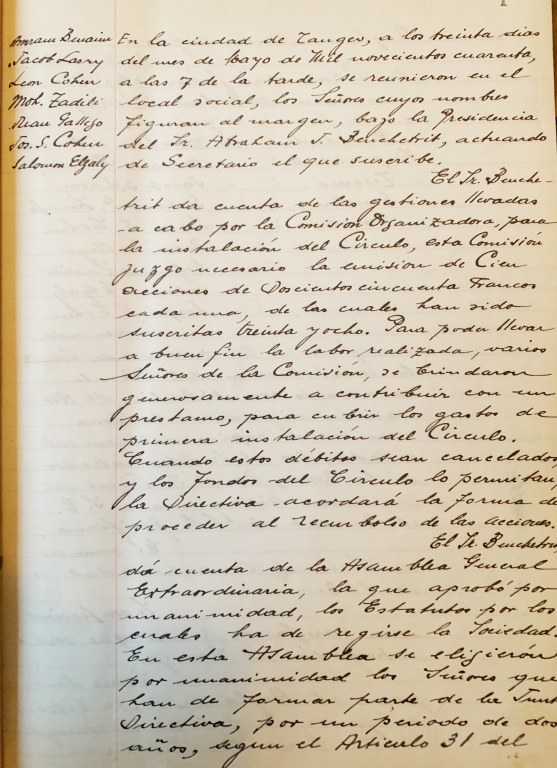 1
Amram Benaim
Jacob Lasry
Leon Cohen
Moh. Zadili
Juan Gallego
Jos. S. Cohen
Salomon Elgaly
En la ciudad de Tanger, a los treinta dias
del mes de Mayo de Mil novecientos cuarenta,
a las 7 de la tarde, se reunieron en el
local social, los Señores cuyos nombres
figuran al margen, bajo la Presidencia
del Sr. Abraham J. Benchetrit, actuando
de Secretario el que suscribe.
El Sr. Benche-
trit da cuenta de las gestiones llevadas
a cabo por la Comisión Organizadora, para
la instalación del Circulo, esta Comisión
juzgo necesario la emision de Cien
acciones de Doscientos cincuenta Francos
cada una, de las cuales han sido
suscritas treinta y ocho. Para poder llevar
a buen fin la labor realizada, varios
Señores de la Comisión, se brindaron
generosamente a contribuir con un
prestamo, para cubrir los gastos de
primera instalación del Circulo.
Cuando estos débitos sean cancelados
y los fondos del Circulo lo permitan,
la Directiva acordará la forma d
proceder al reembolso de las acciones.
El Sr. Benchetrit
dá cuenta de la Asamblea General
Extraordinaria, la que aprobó por
unanimidad, los Estatutos por los
cuales ha de regirse la Sociedad.
En esta Asamblea se eligierón
por unanimidad los Señores que
han de formar parte de la Junt
Directiva, por un periodo de dos
años, segun el Articulo 31 del